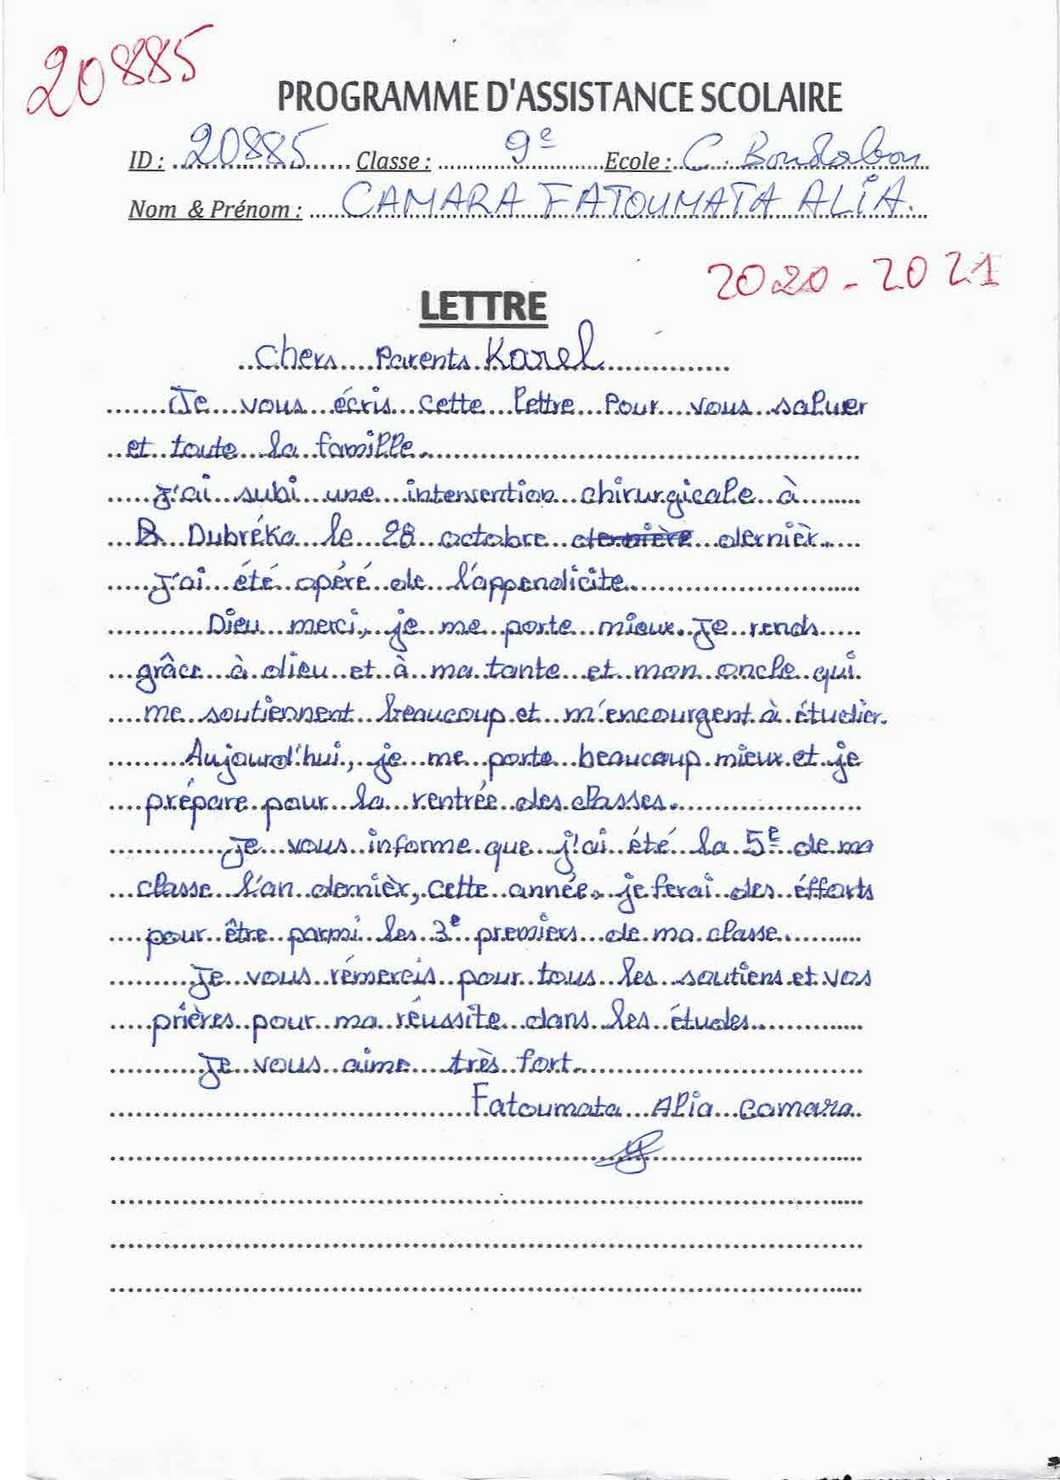 20885
PROGRAMME D'ASSISTANCE SCOLAIRE
ID : 20885 Classe : 9e Ecole : C. Bondabon
Nom & Prénom : CAMARA FATOUMATA ALIA.
2020-2021
LETTRE
Chers Parents Karel
Je vous écris cette lettre Pour vous saluer
et toute la famille.
J'ai subi une intervention chirurgicale à
B Dubréka le 28 octobre dernière dernièr.
J'ai été opéré de l'appendicite.
Dieu merci, je me porte mieux. Je rends
grâce à dieu et à ma tante et mon oncle qui
me soutiennent beaucoup et m'encourgent à étudier.
Aujourd'hui, je me porte beaucoup mieux et je
prépare pour la rentrée des classes.
Je vous informe que j'ai été la 5e de ma
classe l'an dernièr, cette année, je ferai des éfforts
pour être parmi les 3e premiers de ma classe.
Je vous rémercis pour tous les soutiens et vos
prières pour ma réussite dans les études.
Je vous aime très fort.
Fatoumata Alia camara